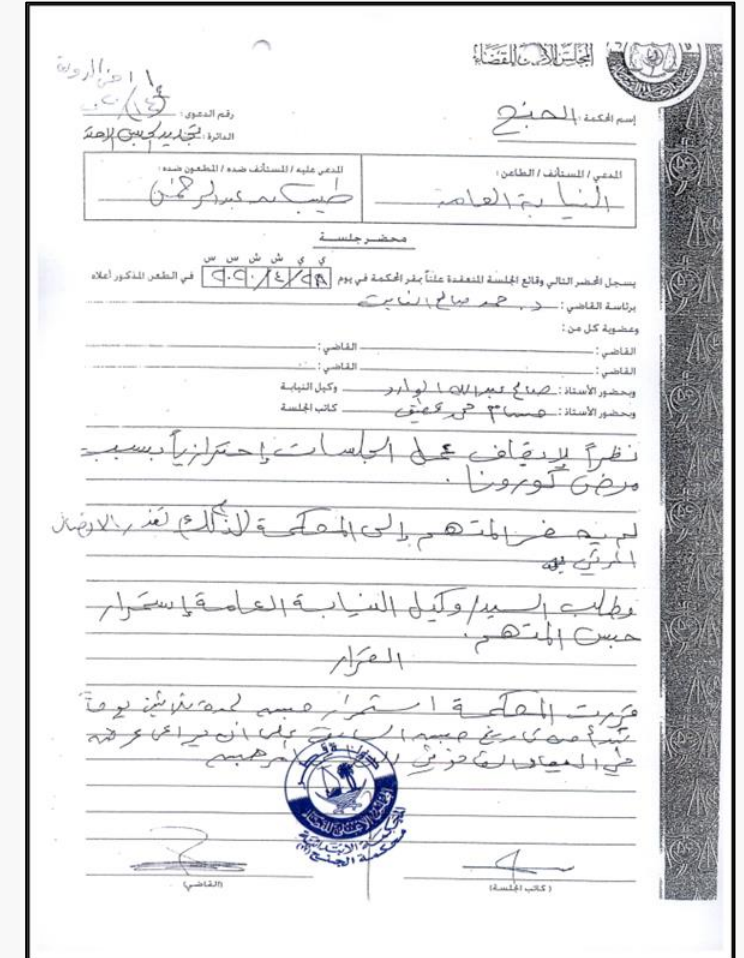 المجلس الأعلى للقضاء
إسم المحكمة : الجنح
رقم الدعوى :
الدائرة : تجديد حبس
المدعي / المستأنف / الطاعن :
النيابة العامة
المدعى عليه / المستأنف ضده / المطعون ضده :
طيب محمد عبدالرحمن
محضر جلسة
ي ي ش ش س س
يسجل المحضر التالي وقائع الجلسة المنعقدة علناً بمقر المحكمة في يوم ٢٨/٤/٢٠٢٠ في الطعن المذكور أعلاه
برئاسة القاضي : د. حمد صالح النابت
وعضوية كل من :
القاضي : القاضي :
القاضي : القاضي :
وبحضور الأستاذ : صالح عبدالله وكيل النيابة
وبحضور الأستاذ : حسام كاتب الجلسة
نظراً لإيقاف عمل الجلسات إحترازياً بسبب
مرض كورونا.
لم يحضر المتهم إلى المحكمة لذلك تعذر الاتصال
المرئي به
وطلب السيد/ وكيل النيابة العامة إستمرار
حبس المتهم.
القرار
قررت المحكمة استمرار حبسه لمدة ثلاثين يوماً
تبدأ من تاريخ حبسه السابق على ان يراعى عرضه
في الميعاد القانوني
دولة قطر
المجلس الأعلى للقضاء
المحكمة الابتدائية
محكمة الجنح
(كاتب الجلسة)
(القاضي)